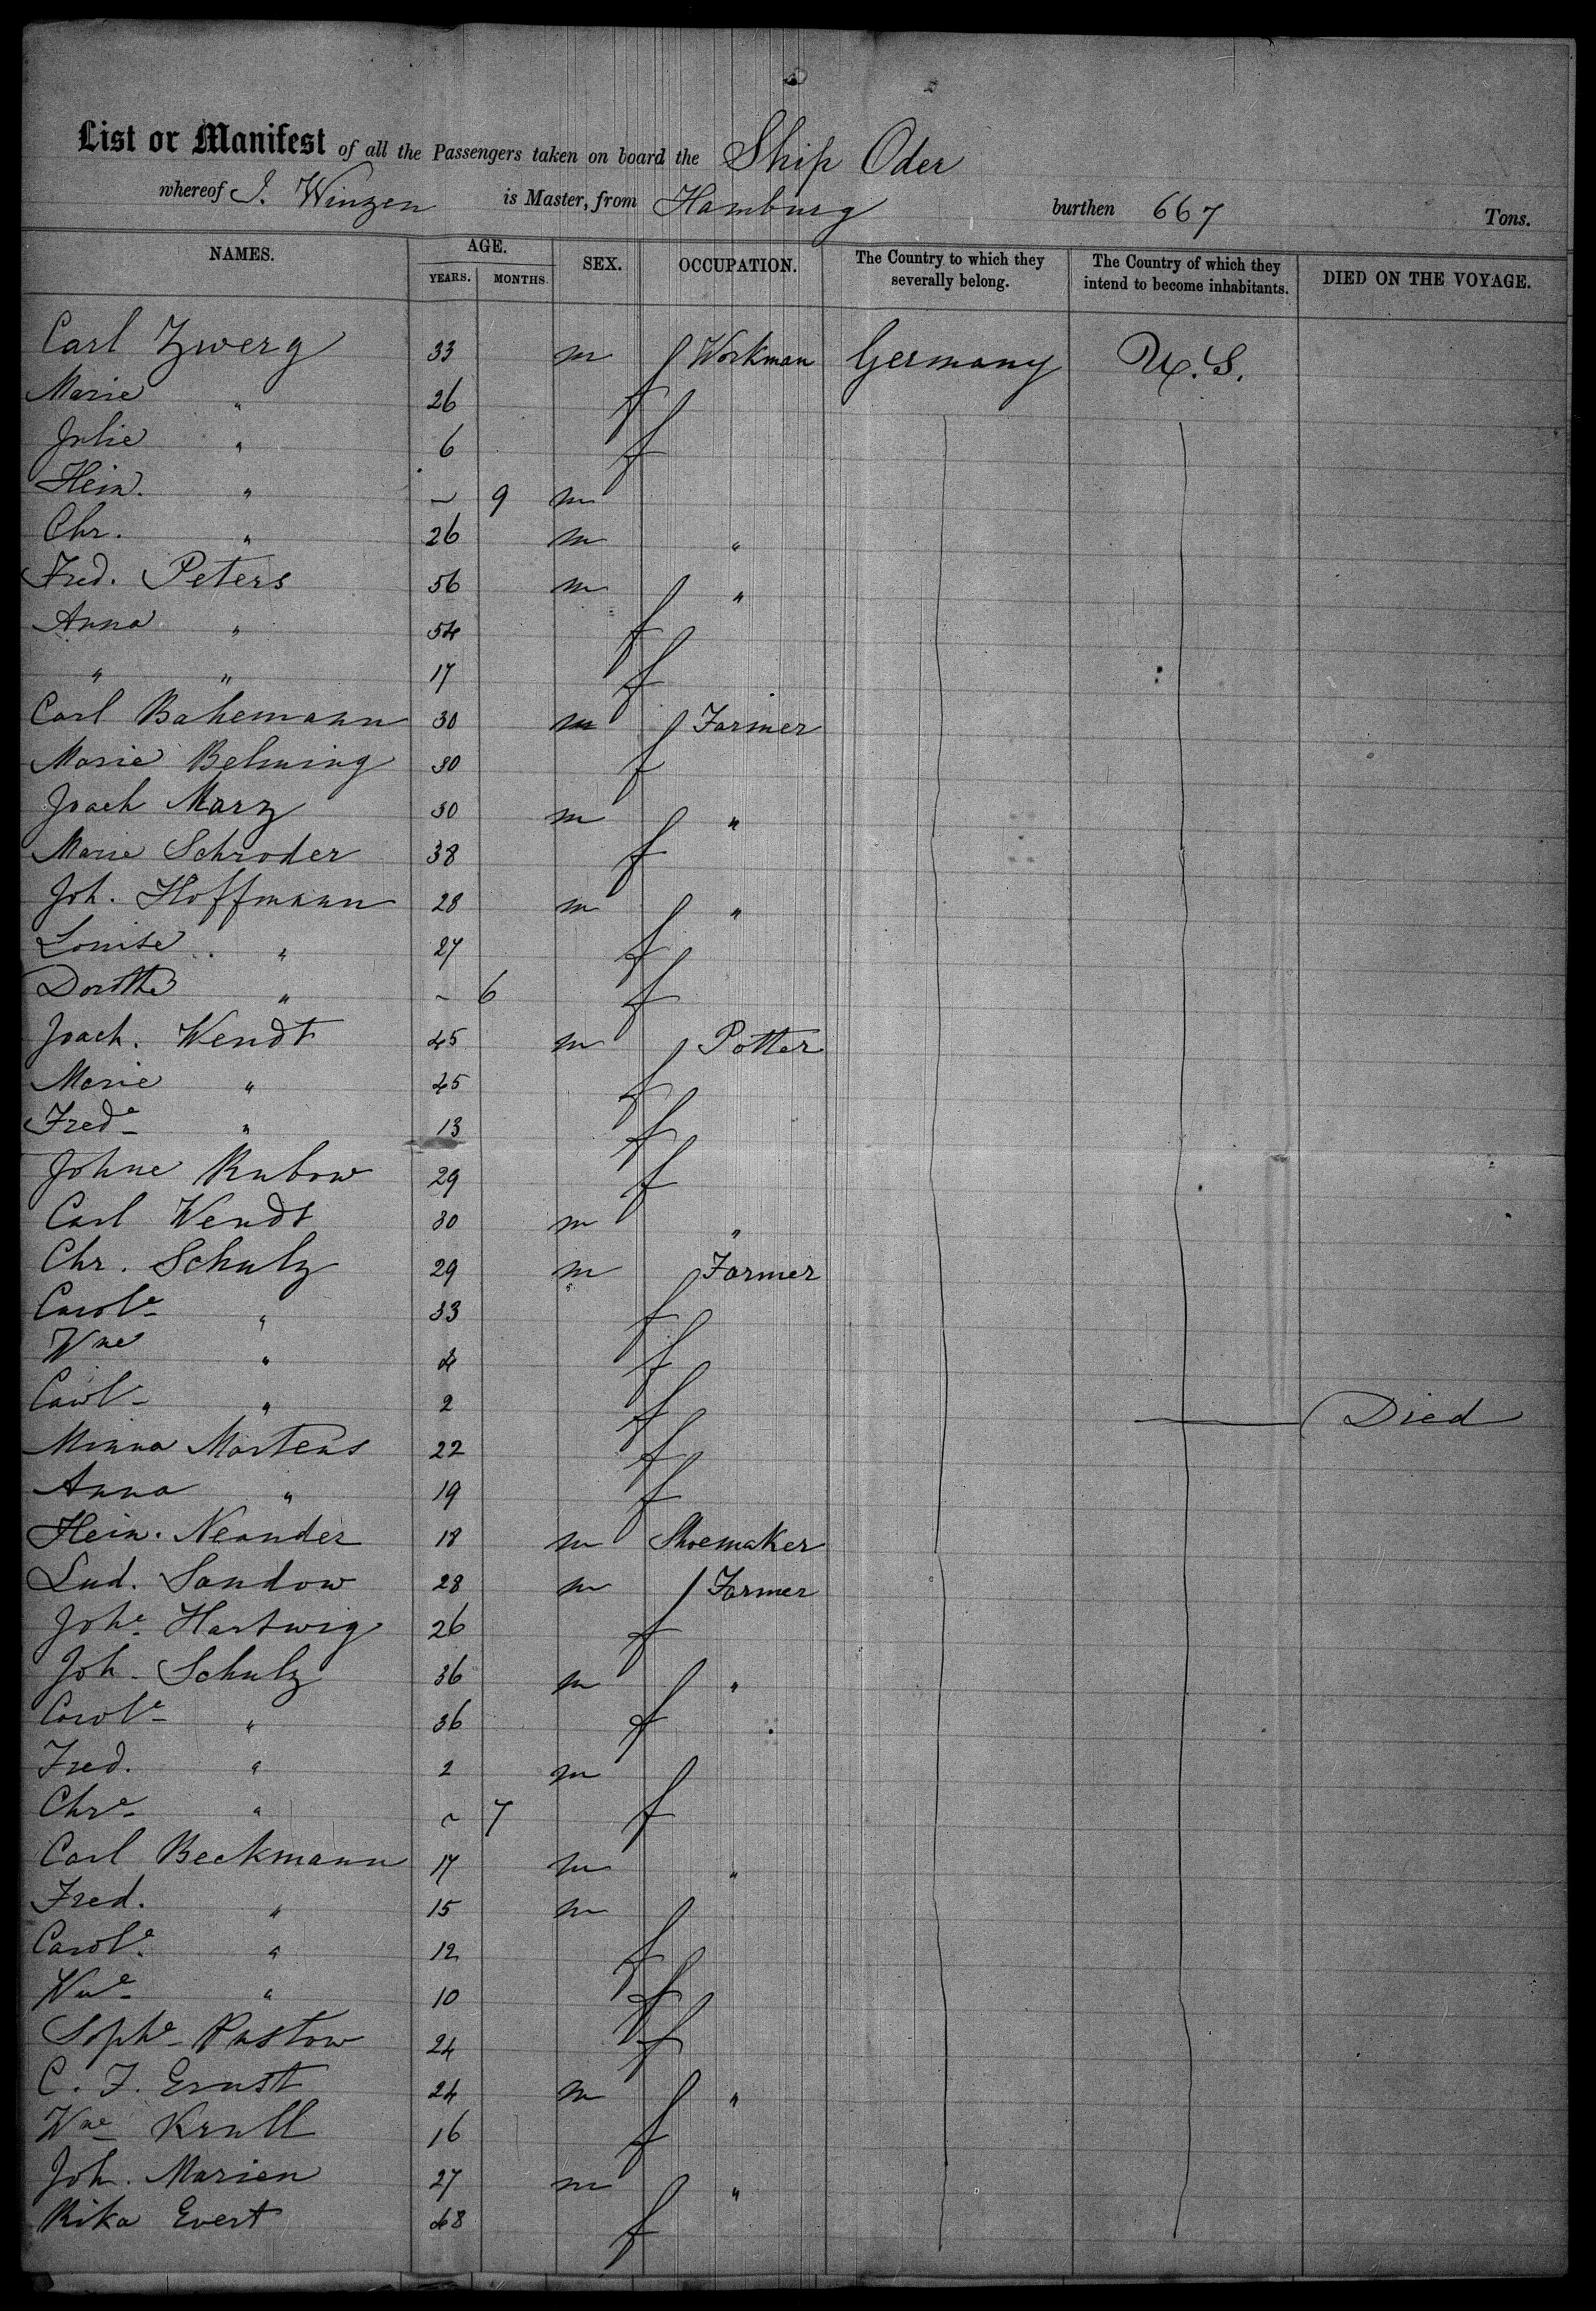 List or Manifest of all the Passengers taken on board the Ship Oder
whereof J. Winzen is Master, from Hamburg burthen 667 Tons.
NAMES. AGE. YEARS. MONTHS. SEX. OCCUPATION. The Country to which they severally belong. The Country of which they intend to become inhabitants. DIED ON THE VOYAGE.
Carl Zwerg 33 m Workman Germany U.S.
Marie " 26 f
Julie " 6 f
Hein. " – 9 m
Chr. " 26 m "
Fred. Peters 56 m "
Anna " 54 f
" " 17 f
Carl Bahemann 30 m Farmer
Marie Behning 30 f
Joach Marz 30 m "
Marie Schroder 38 f
Joh. Hoffmann 28 m "
Louise " 27 f
Dorothe " – 6 f
Joach. Wendt 45 m Potter
Marie " 45 f
Frede " 13 f
Johne Rubow 29 f
Carl Wendt 30 m "
Chr. Schulz 29 m Farmer
Carole " 33 f
Wne " 4 f
Carol " 2 f Died
Minna Martens 22 f
Anna " 19 f
Hein. Neander 18 m Shoemaker
Lud. Sandow 28 m Farmer
Johe Hartwig 26 f
Joh. Schulz 36 m "
Carole " 36 f
Fred. " 2 m
Chre " – 7 f
Carl Beckmann 17 m "
Fred. " 15 m
Carole " 12 f
Wne " 10 f
Sophe Pastow 24 f
C. F. Ernst 24 m "
Wne Krull 16 f
Joh. Marien 27 m "
Rika Evert 48 f